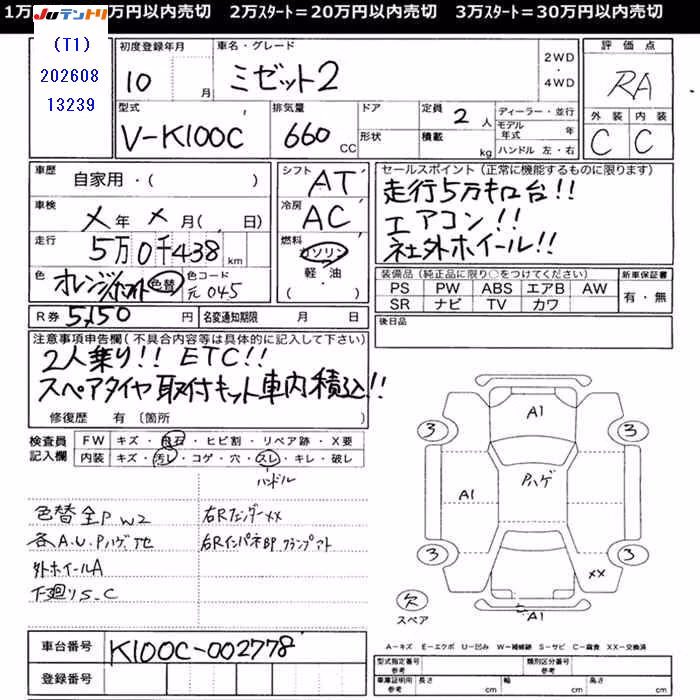 1万 万円以内売切 2万スタート=20万円以内売切 3万スタート=30万円以内売切
JUテントリ
(T1)
202608
13239
初度登録年月 10 月
車名・グレード ミゼット2
2WD・4WD
評価点 RA
外装 C 内装 C
型式 V-K100C
排気量 660 CC
ドア
形状
定員 2 人
積載 kg
ディーラー・並行
モデル年式 年
ハンドル 左・右
車歴 自家用・( )
車検 メ年メ月( 日)
走行 5万0千438 km
色 オレンジ/ホワイト 色替 色コード 元 045
シフト AT
冷房 AC
燃料 ガソリン
軽・油
( )
セールスポイント(正常に機能するものに限ります)
走行5万キロ台!!
エアコン!!
社外ホイール!!
装備品(純正品に限り○をつけてください)
PS PW ABS エアB AW
SR ナビ TV カワ
新車保証書
有・無
R券 5,150 円 名変通知期限 月 日
後日品
注意事項申告欄(不具合内容等は具体的に記入して下さい)
2人乗り!! ETC!!
スペアタイヤ取付キット車内積込!!
修復歴 有 〔箇所 〕
検査員記入欄
FW キズ・飛石・ヒビ割・リペア跡・X要
内装 キズ・汚レ・コゲ・穴・スレ・キレ・破レ
ハンドル
色替全P W2
各A.U.Pハゲ他
外ホイールA
下廻りS.C
右Rフェンダーxx
右RインパネBP クランプアト
A1
3 3
Pハゲ
A1
3 3
xx
欠
スペア
A1
車台番号 K100C-002778
登録番号
A−キズ E−エクボ U−凹み W−補修跡 S−サビ C−腐食 XX−交換済
型式指定番号 参考
類別区分番号 参考
車庫証明用 参考 長さ cm 幅 cm 高さ cm